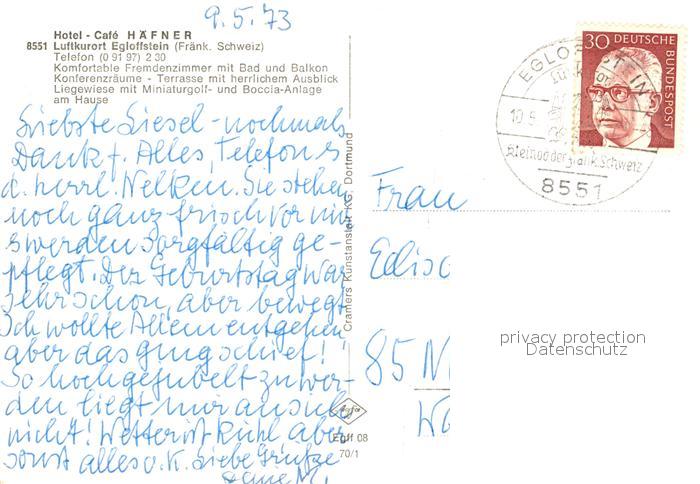 9.5.73
Hotel - Café HÄFNER
8551 Luftkurort Egloffstein (Fränk. Schweiz)
Telefon (0 91 97) 2 30
Komfortable Fremdenzimmer mit Bad und Balkon
Konferenzräume - Terrasse mit herrlichem Ausblick
Liegewiese mit Miniaturgolf- und Boccia-Anlage
am Hause
Liebste Liesel - nochmals
Dank f. Alles, Telefon u
d. herrl. Nelken. Sie stehen
noch ganz frisch vor mir
werden sorgfältig ge-
pflegt. Der Geburtstag war
sehr schön, aber bewegt
Ich wollte Allem entgehen
aber das ging schief!
So hochgejubelt zu wer-
den liegt mir an sich
nicht! Wetter ist kühl, aber
sonst alles o.K. Liebe Grüße
M.
Cramers Kunstanstalt KG, Dortmund
Agfa
Egff 08
70/1
30 DEUTSCHE BUNDESPOST
EGLOFFSTEIN
10.5
Kleinod der fränk. Schweiz
8551
Frau
85 N
privacy protection
Datenschutz